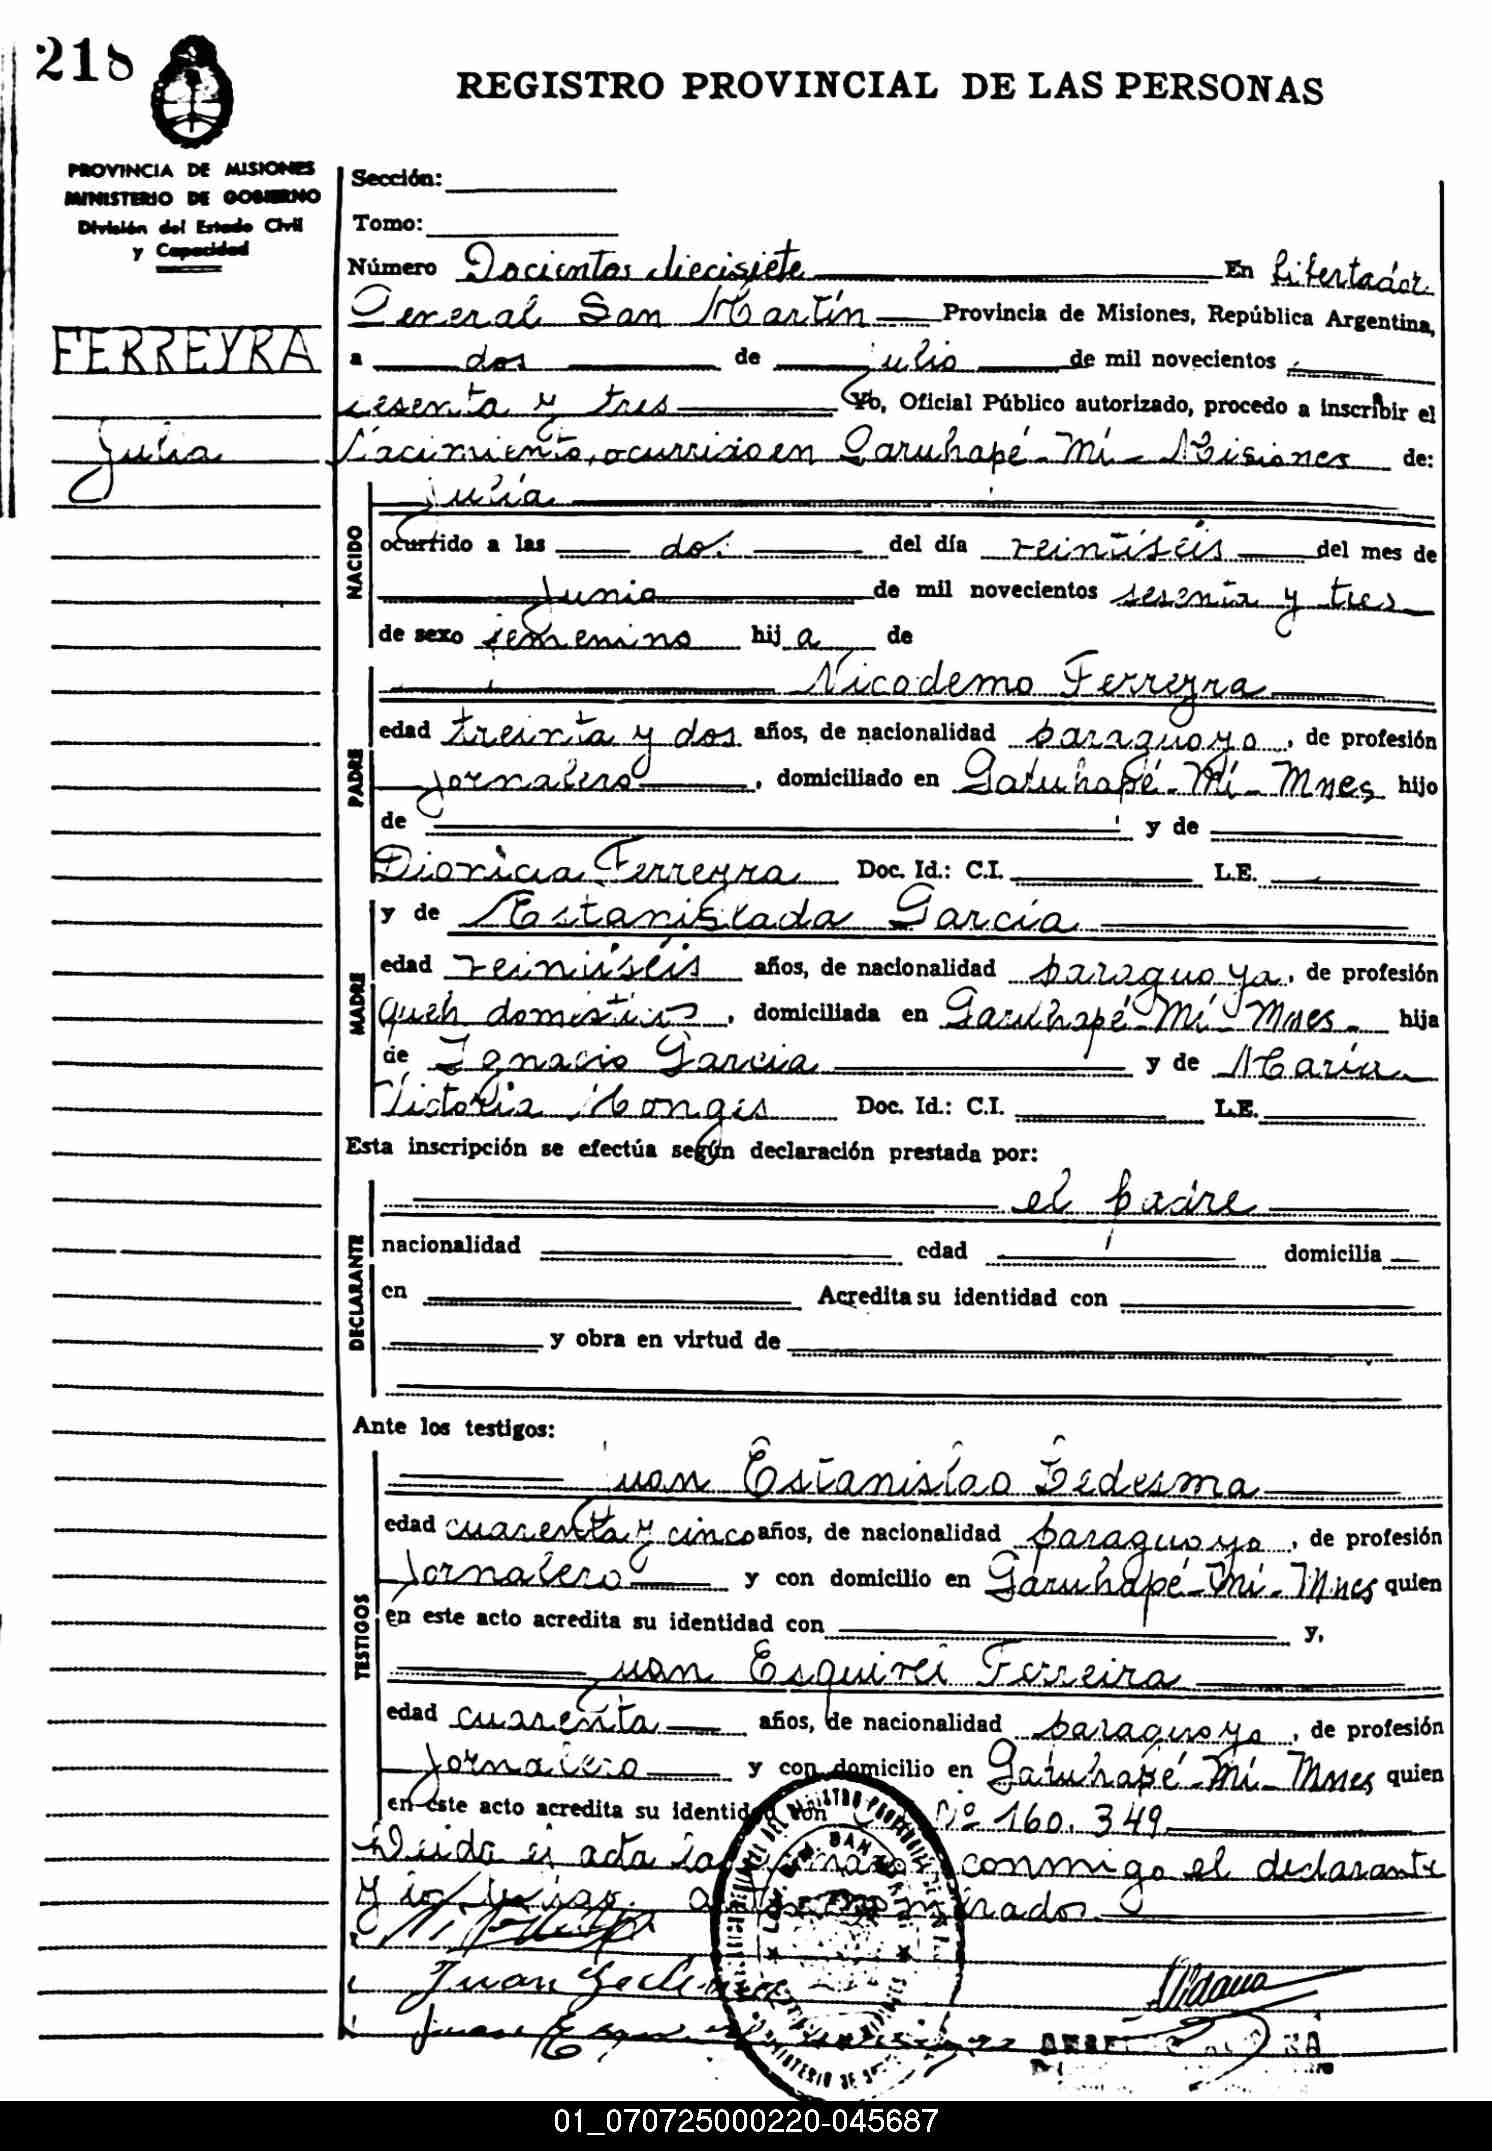 218
REGISTRO PROVINCIAL DE LAS PERSONAS
PROVINCIA DE MISIONES
MINISTERIO DE GOBIERNO
División del Estado Civil
y Capacidad
Sección:
Tomo:
Número Docientos diecisiete En Libertador
General San Martín Provincia de Misiones, República Argentina,
FERREYRA
a dos de julio de mil novecientos
sesenta y tres Yo, Oficial Público autorizado, procedo a inscribir el
Julia
Nacimiento, ocurrido en Garuhapé-Mí-Misiones de:
NACIDO
Julia
ocurrido a las dos del día veintiséis del mes de
Junio de mil novecientos sesenta y tres
de sexo femenino hij a de
PADRE
Nicodemo Ferreyra
edad treinta y dos años, de nacionalidad paraguayo, de profesión
jornalero, domiciliado en Garuhapé-Mí-Mnes hijo
de y de
Dionicia Ferreyra Doc. Id.: C.I. L.E.
MADRE
y de Estanislada García
edad veintiséis años, de nacionalidad paraguaya, de profesión
queh. domésticos, domiciliada en Garuhapé-Mí-Mnes. hija
de Ignacio Garcia y de María
Victoria Monges Doc. Id.: C.I. L.E.
Esta inscripción se efectúa según declaración prestada por:
DECLARANTE
el padre
nacionalidad edad domicilia
en Acredita su identidad con
y obra en virtud de
Ante los testigos:
TESTIGOS
Juan Estanislao Ledesma
edad cuarenta y cinco años, de nacionalidad paraguayo, de profesión
Jornalero y con domicilio en Garuhapé-Mí-Mnes quien
en este acto acredita su identidad con y,
Juan Esquivel Ferreira
edad cuarenta años, de nacionalidad paraguayo, de profesión
Jornalero y con domicilio en Garuhapé-Mí-Mnes quien
en este acto acredita su identidad con Nº 160.349
Leida el acta la conmigo el declarante
y los testigos
Juan Ledesma
Juan Esquivel
01_070725000220-045687